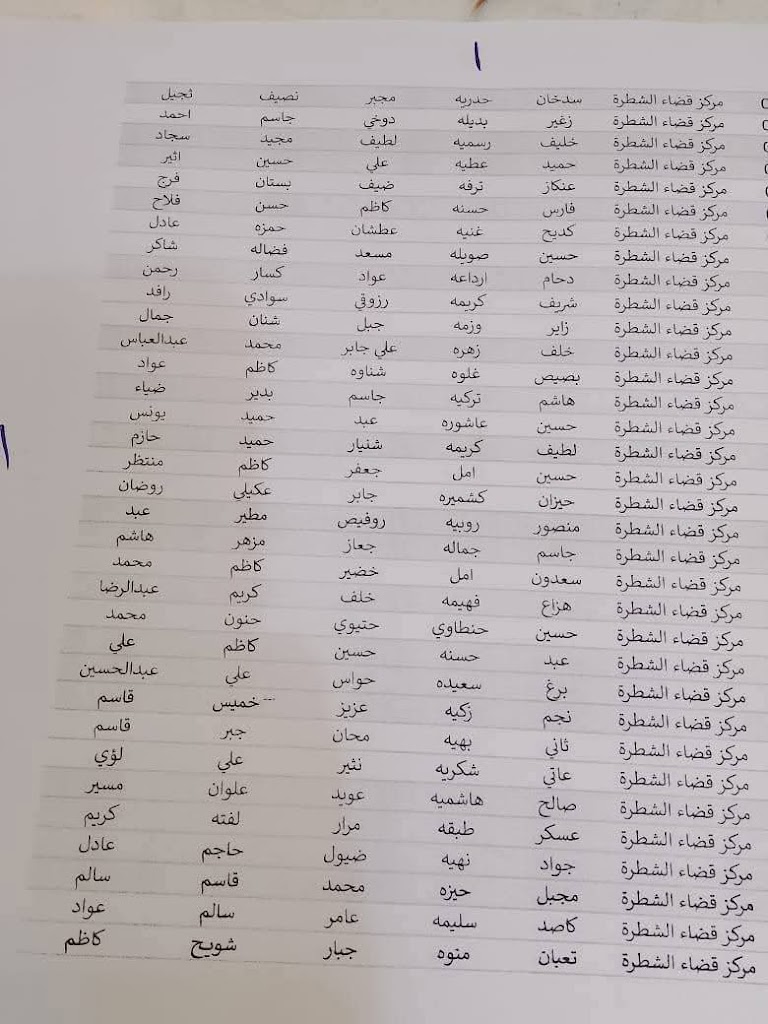 ا
مركز قضاء الشطرة سدخان حدريه مجبر نصيف ثجيل
مركز قضاء الشطرة زغير بديله دوخي جاسم احمد
مركز قضاء الشطرة خليف رسميه لطيف مجيد سجاد
مركز قضاء الشطرة حميد عطيه علي حسين اثير
مركز قضاء الشطرة عنكاز ترفه ضيف بستان فرج
مركز قضاء الشطرة فارس حسنه كاظم حسن فلاح
مركز قضاء الشطرة كديح غنيه عطشان حمزه عادل
مركز قضاء الشطرة حسين صويله مسعد فضاله شاكر
مركز قضاء الشطرة دحام ارداعه عواد كسار رحمن
مركز قضاء الشطرة شريف كريمه رزوقي سوادي رافد
مركز قضاء الشطرة زاير وزمه جبل شنان جمال
مركز قضاء الشطرة خلف زهره علي جابر محمد عبدالعباس
مركز قضاء الشطرة بصيص غلوه شناوه كاظم عواد
مركز قضاء الشطرة هاشم تركيه جاسم بدير ضياء
مركز قضاء الشطرة حسين عاشوره عبد حميد يونس
مركز قضاء الشطرة لطيف كريمه شنيار حميد حازم
مركز قضاء الشطرة حسين امل جعفر كاظم منتظر
مركز قضاء الشطرة حيزان كشميره جابر عكيلي روضان
مركز قضاء الشطرة منصور روبيه روفيص مطير عبد
مركز قضاء الشطرة جاسم جماله جعاز مزهر هاشم
مركز قضاء الشطرة سعدون امل خضير كاظم محمد
مركز قضاء الشطرة هزاع فهيمه خلف كريم عبدالرضا
مركز قضاء الشطرة حسين حنطاوي حتيوي حنون محمد
مركز قضاء الشطرة عبد حسنه حسين كاظم علي
مركز قضاء الشطرة برغ سعيده حواس علي عبدالحسين
مركز قضاء الشطرة نجم زكيه عزيز خميس قاسم
مركز قضاء الشطرة ثاني بهيه محان جبر قاسم
مركز قضاء الشطرة عاتي شكريه نثير علي لؤي
مركز قضاء الشطرة صالح هاشميه عويد علوان مسير
مركز قضاء الشطرة عسكر طبقه مرار لفته كريم
مركز قضاء الشطرة جواد نهيه ضيول حاجم عادل
مركز قضاء الشطرة مجبل حيزه محمد قاسم سالم
مركز قضاء الشطرة كاصد سليمه عامر سالم عواد
مركز قضاء الشطرة تعبان منوه جبار شويح كاظم